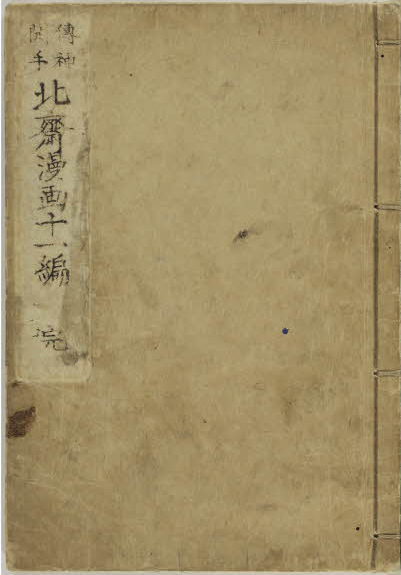 傳神
開手
北齋漫画十一編
完